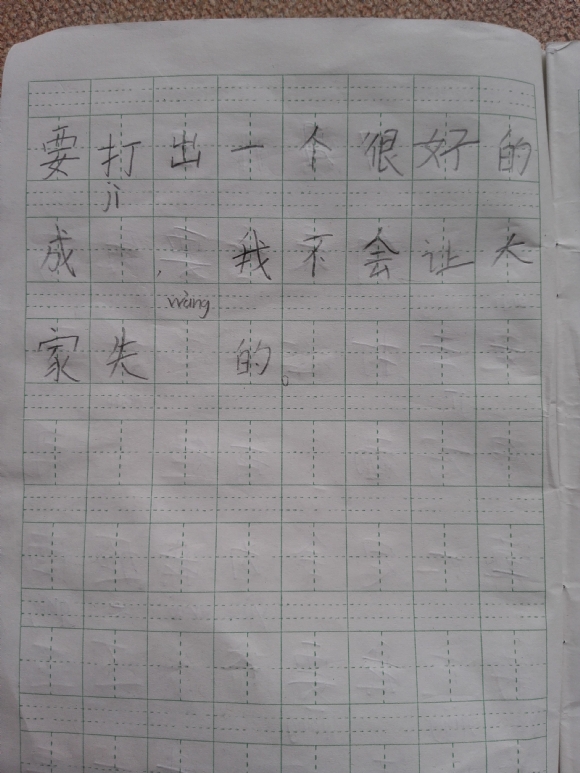 要打出一个很好的
jì
成，我不会让大
wàng
家失的。